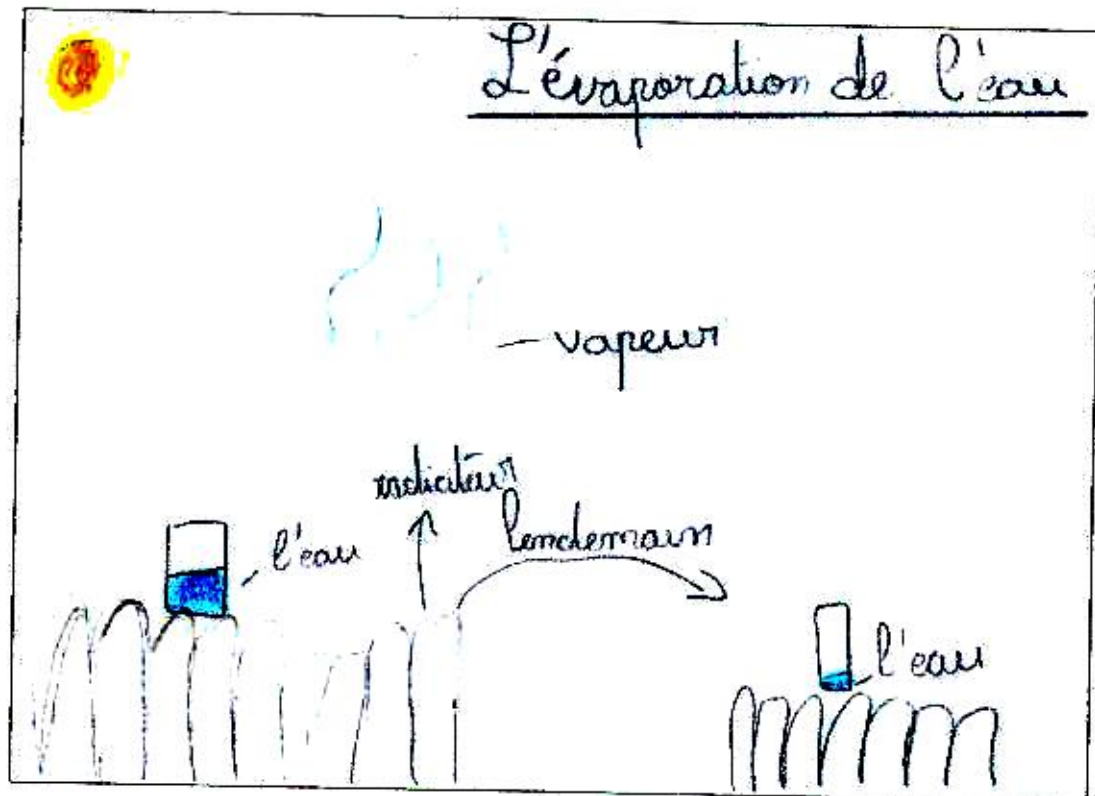 L'évaporation de l'eau
vapeur
lendemain
l'eau
l'eau